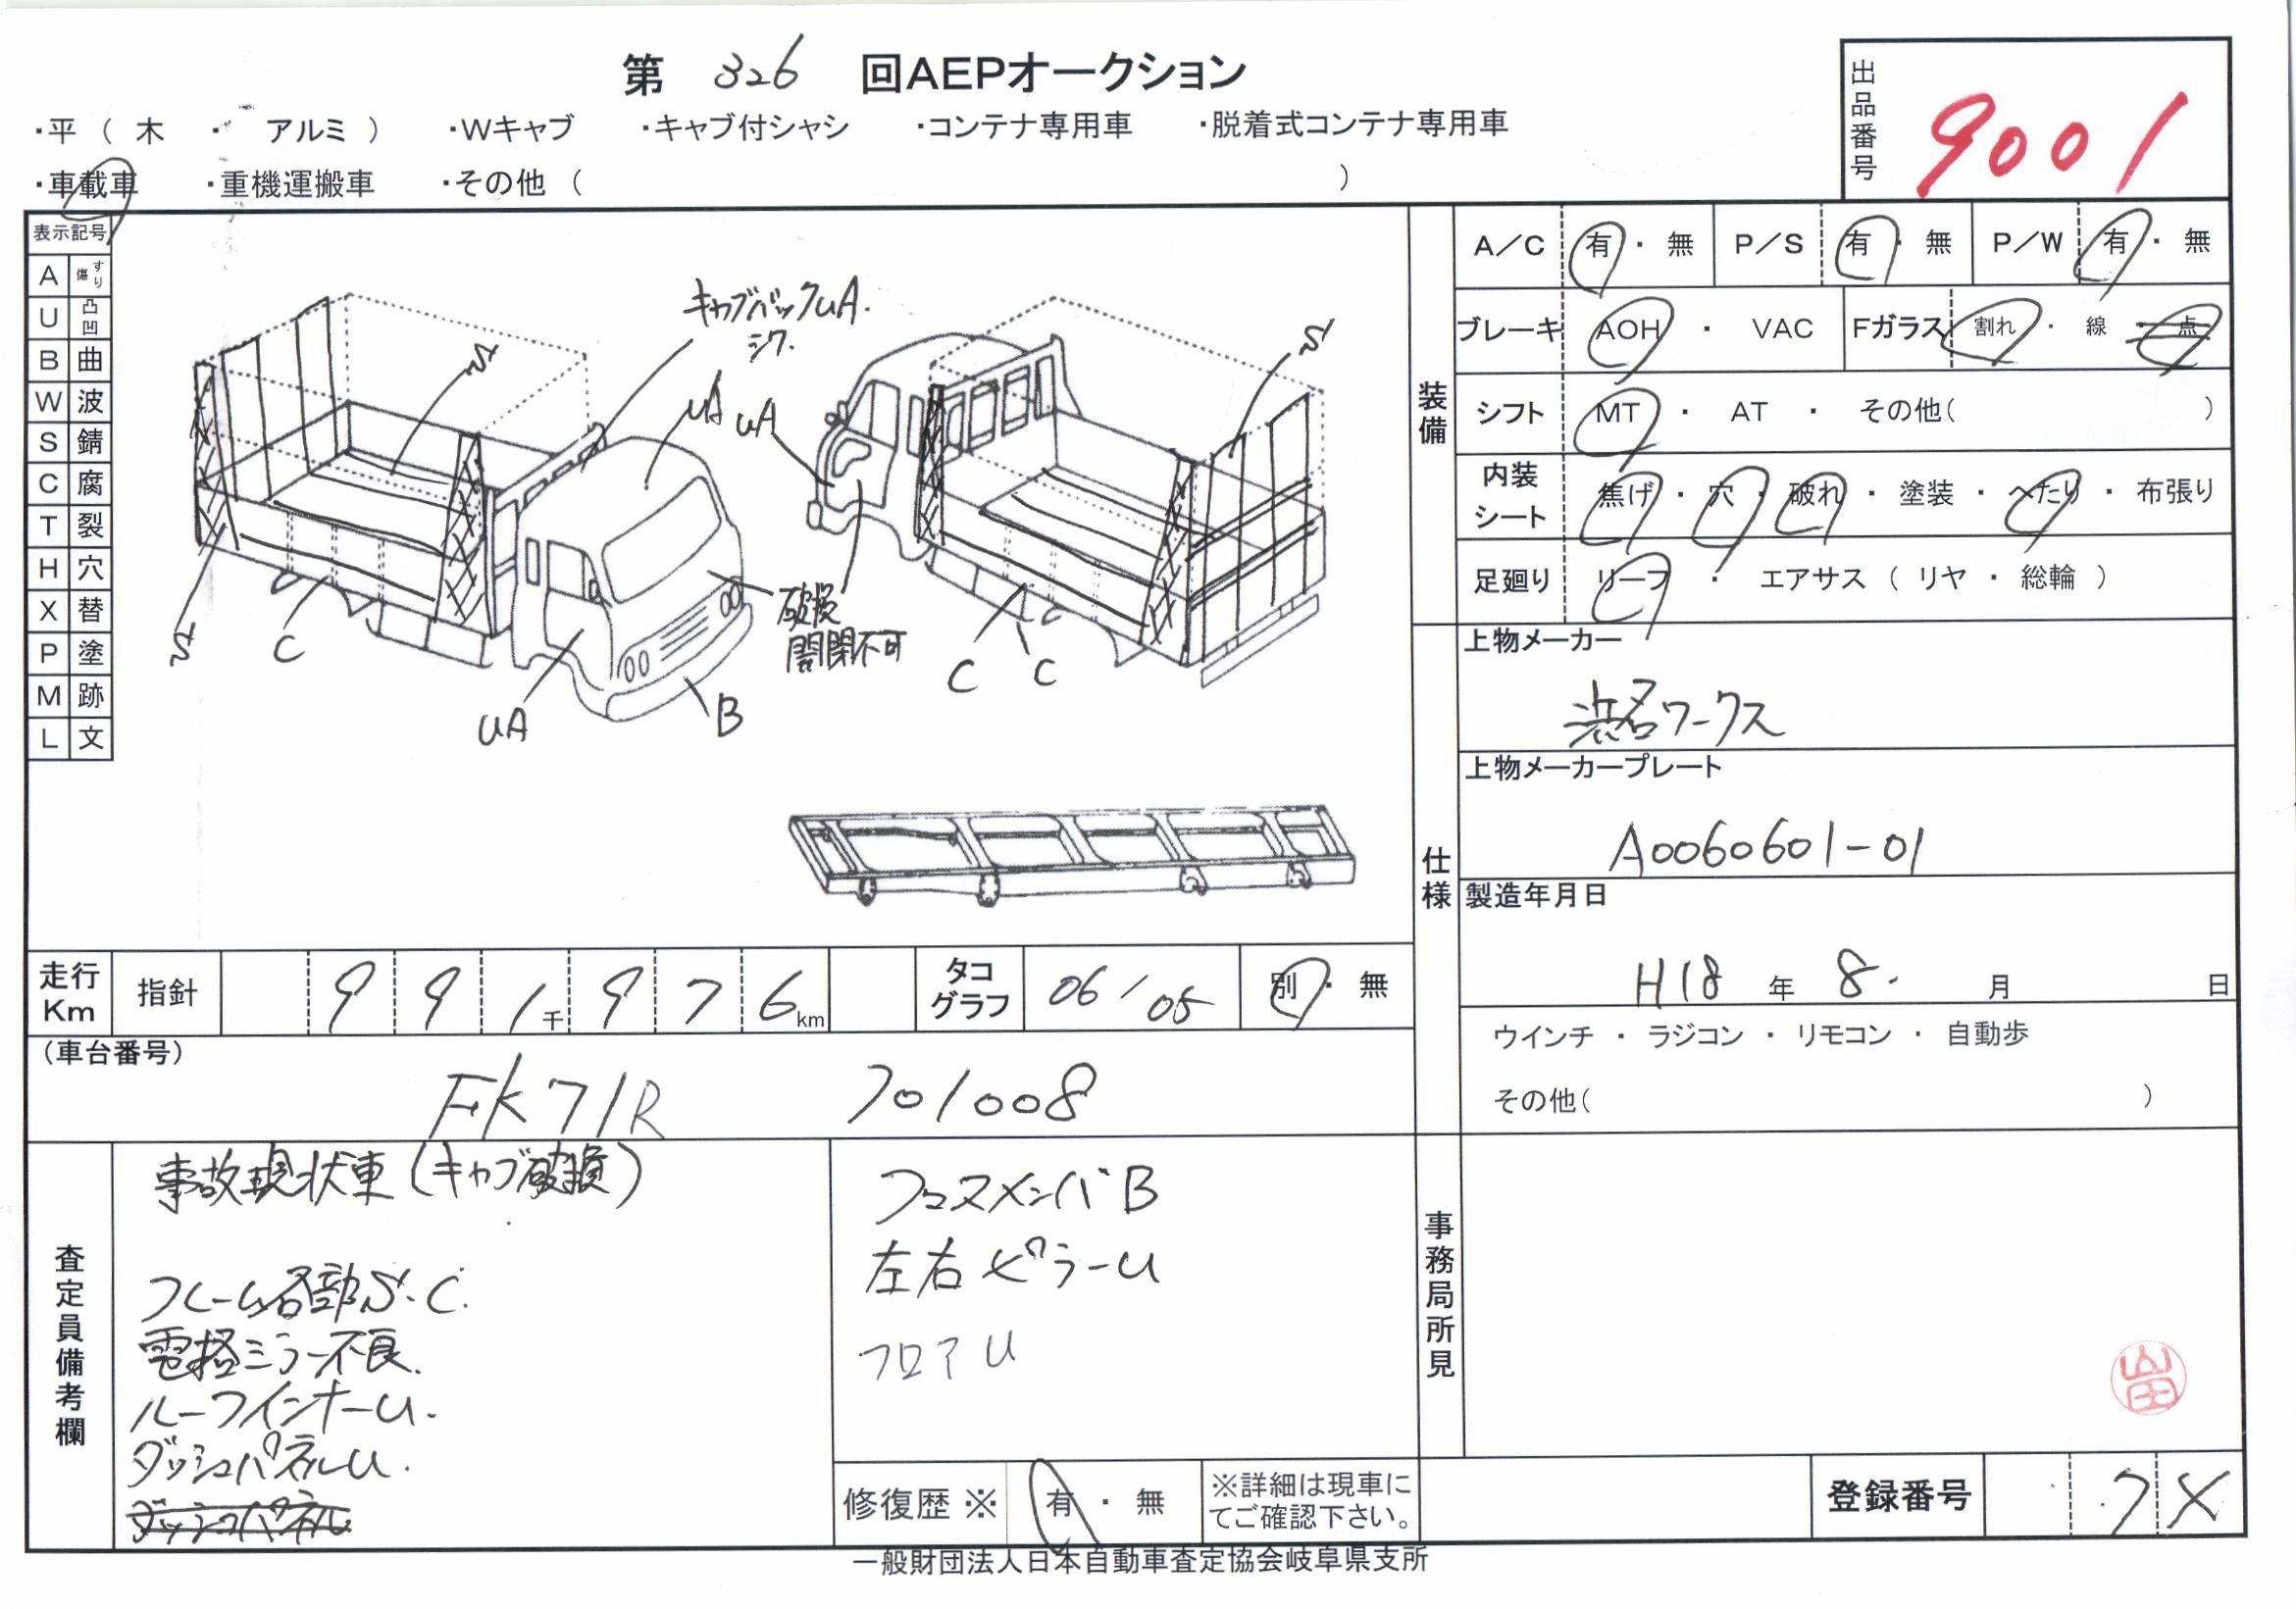 第 326 回AEPオークション
出品番号 9001
・平 ( 木 ・ アルミ ) ・Wキャブ ・キャブ付シャシ ・コンテナ専用車 ・脱着式コンテナ専用車
・車載車 ・重機運搬車 ・その他 ( )
表示記号
A すり傷
U 凸凹
B 曲
W 波
S 錆
C 腐
T 裂
H 穴
X 替
P 塗
M 跡
L 文
キャブバックUA.
シワ.
S
UA
UA
S
破損
開閉不可
S
C
UA
B
C
C
装備
A/C 有・無 P/S 有・無 P/W 有・無
ブレーキ AOH ・ VAC Fガラス 割れ ・ 線 ・ 点
シフト MT ・ AT ・ その他( )
内装シート 焦げ ・ 穴 ・ 破れ ・ 塗装 ・ へたり ・ 布張り
足廻り リーフ ・ エアサス ( リヤ ・ 総輪 )
仕様
上物メーカー
浜名ワークス
上物メーカープレート
A0060601-01
製造年月日
H18 年 8. 月 日
ウインチ ・ ラジコン ・ リモコン ・ 自動歩
その他( )
走行Km 指針 9 9 1千 9 7 6km タコグラフ 06/05 別・無
(車台番号)
FK71R 701008
査定員備考欄
事故現状車(キャブ破損)
フレーム各部S.C.
電格ミラー不良.
ルーフインナーU.
ダッシュパネルU.
ダッシュパネル
クロスメンバB
左右ピラーU
フロアU
修復歴 ※ 有 ・ 無 ※詳細は現車にてご確認下さい。
事務局所見
登録番号 7X
一般財団法人日本自動車査定協会岐阜県支所